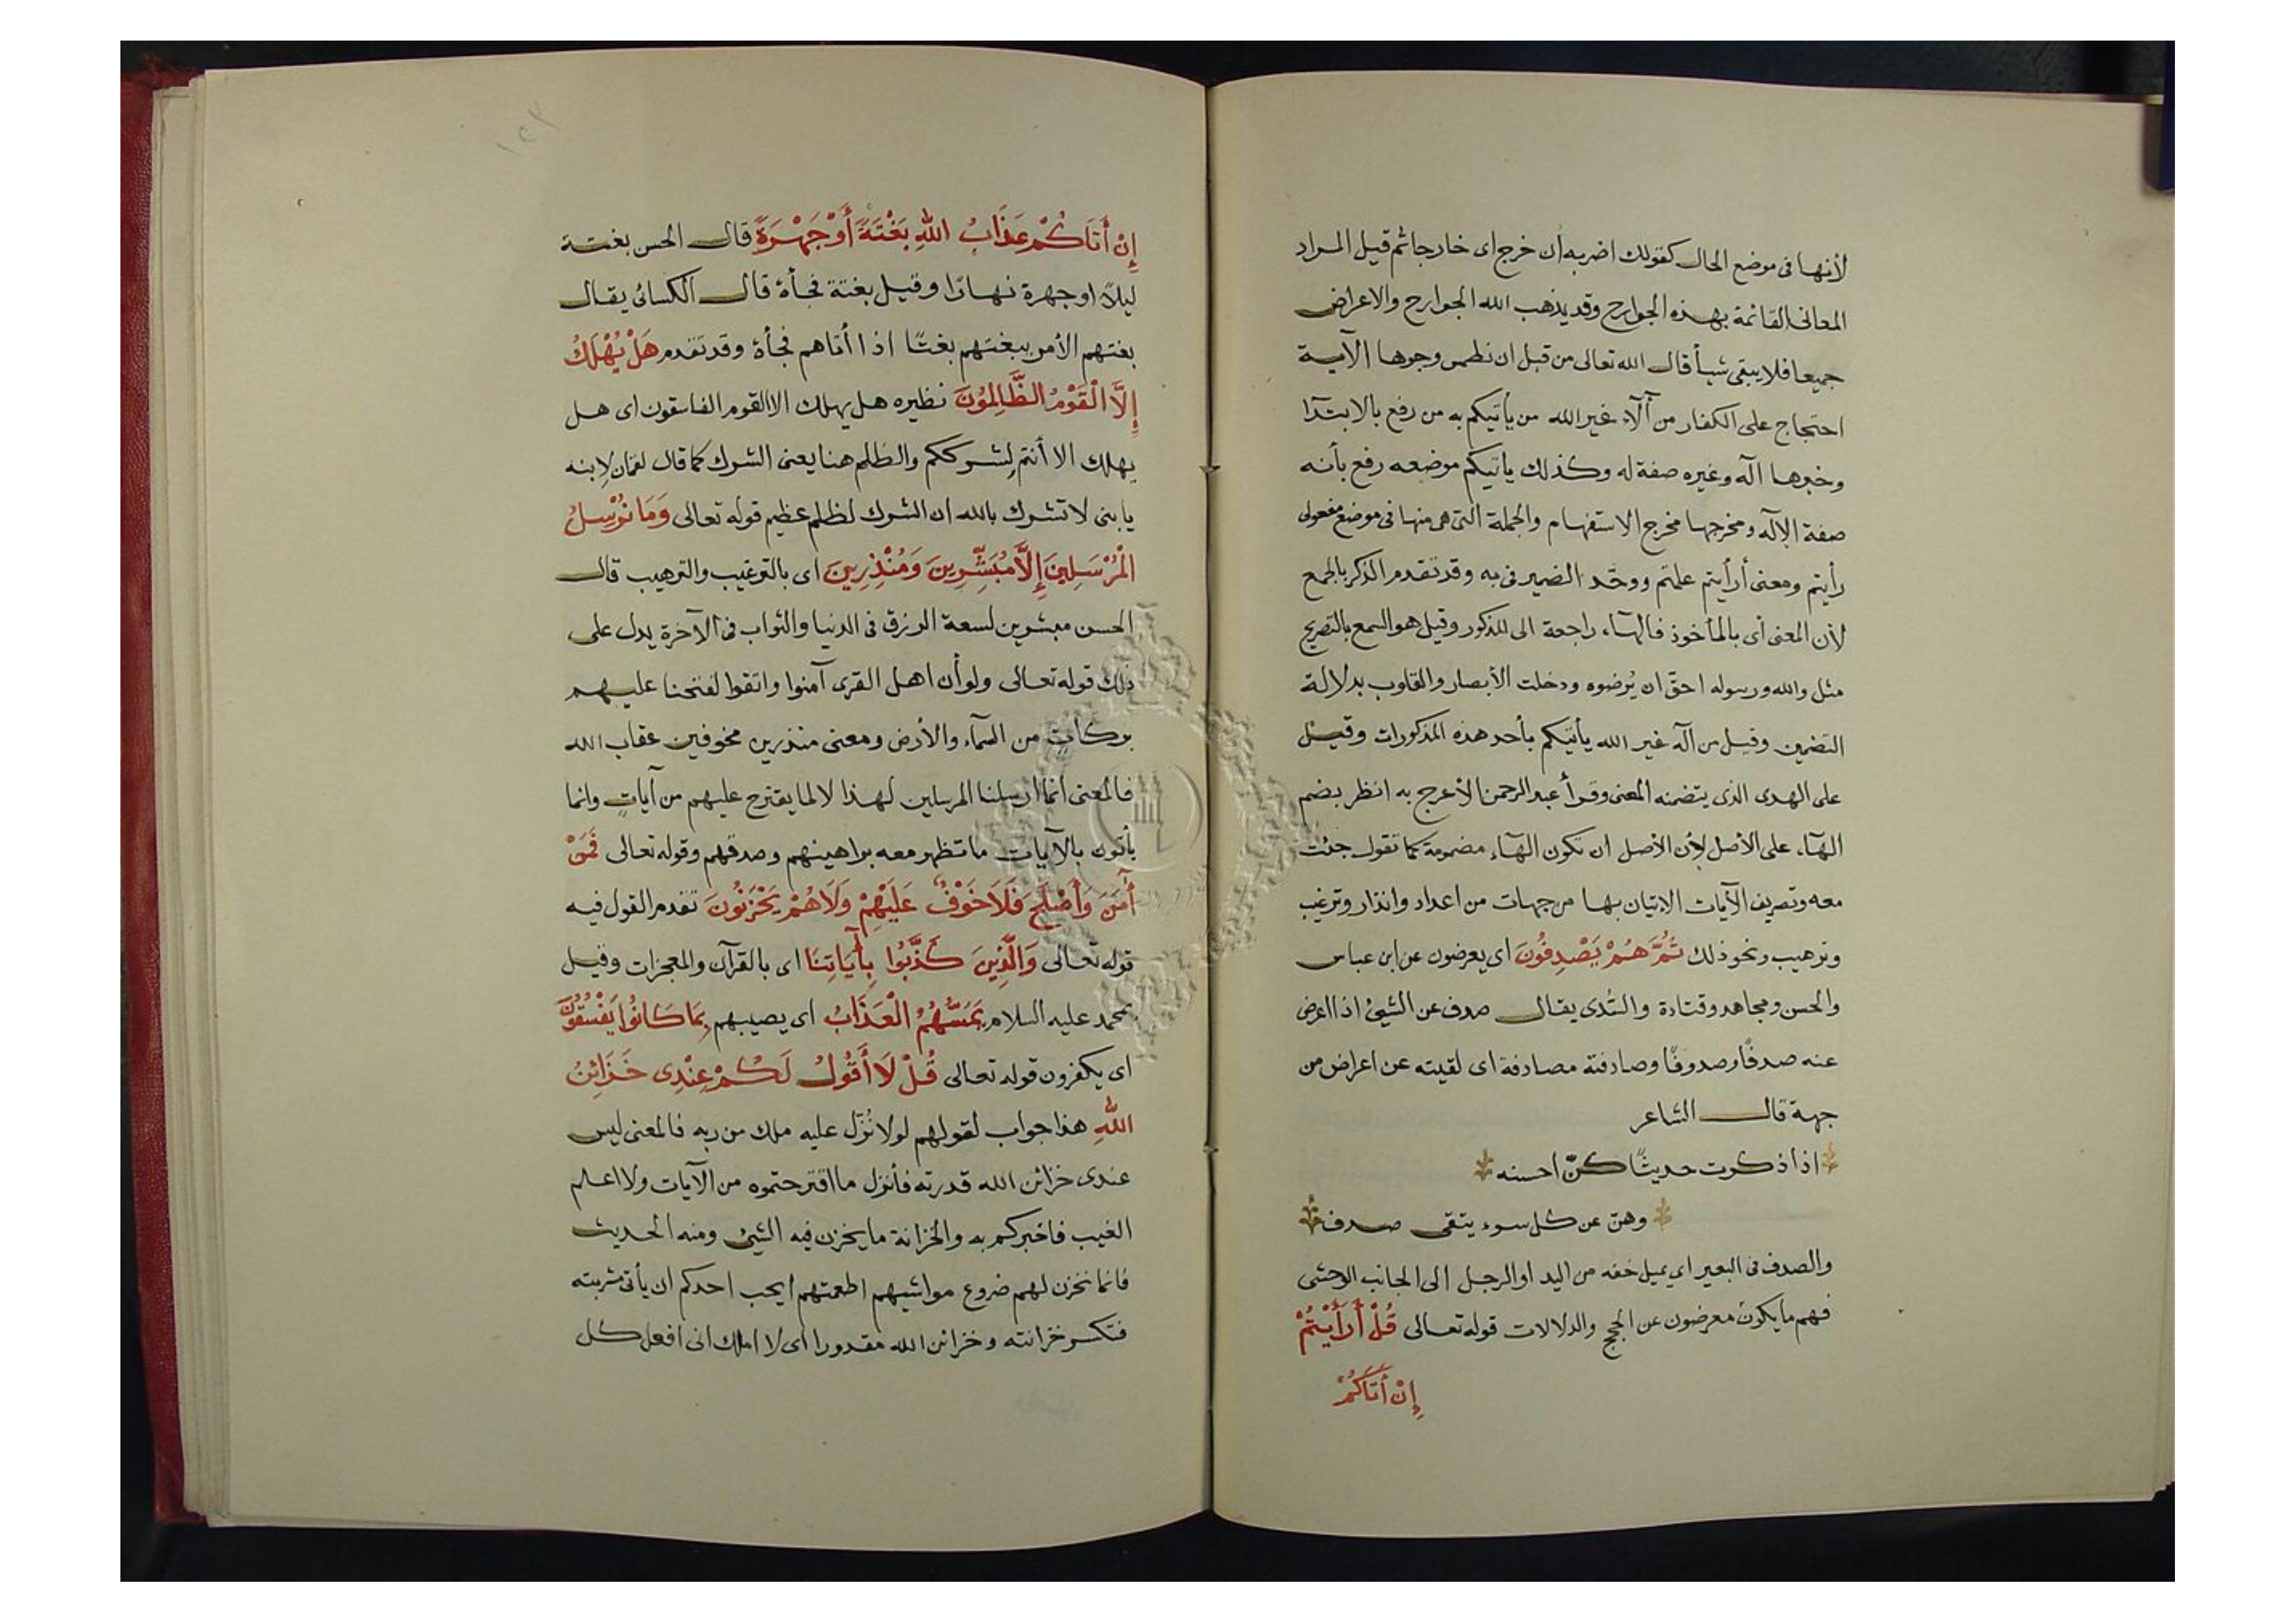 لأنها فى موضع الحال كقولك اضربه أن خرج اى خارجا ثم قيل المراد
المعانى القائمة بهذه الجوارح وقد يذهب الله الجوارح والاعراض
جميعا فلا يبقى شيأ قال الله تعالى من قبل ان نطمس وجوها الآية
احتجاج على الكفار من آلآء غير الله من يأتيكم به من رفع بالابتدآ
وخبرها اله وغيره صفة له وكذلك يأتيكم موضعه رفع بأنه
صفة الإله ومخرجها مخرج الاستفهام والجملة التى هى منها فى موضع مفعولى
رأيتم ومعنى أرأيتم علمتم ووحّد الضمير فى به وقد تقدم الذكر بالجمع
لأن المعنى أى بالمأخوذ فالهآء راجعة الى المذكور وقيل هو السمع بالتصريح
مثل والله ورسوله احقّ ان يُرضوه ودخلت الأبصار والقلوب بدلالة
التضمين وقيل من اله غير الله يأتيكم بأحد هذه المذكورات وقيل
على الهدى الذى يتضمنه المعنى وقرأ عبد الرحمن الأعرج به انظر بضم
الهآء على الأصل لأن الأصل ان تكون الهآء مضمومة كما تقول جئت
معه وتصريف الآيات الاتيان بها من جهات من اعداد وانذار وترغيب
وترهيب ونحو ذلك ثُمَّ هُمْ يَصْدِفُونَ اى يعرضون عن ابن عباس
والحسن ومجاهد وقتادة والسّدى يقال صدف عن الشيئ اذا اعرض
عنه صدفًا وصدوفًا وصادفته مصادفة اى لقيته عن اعراض من
جهة قال الشاعر
اذا ذكرت حديثًا كنّ احسنه
وهنّ عن كل سوء يتقى صدف
والصدف فى البعير اى يميل خفه من اليد او الرجل الى الجانب الوحشى
فهم ما يكون معرضون عن الحجج والدلالات قوله تعالى قُلْ أَرَأَيْتُمْ
إِنْ أَتَاكُمْ
إِنْ أَتَاكُمْ عَذَابُ اللهِ بَغْتَةً أَوْ جَهْرَةً قال الحسن بغتة
ليلاً او جهرة نهارًا وقيل بغتة فجأة قال الكسائى يقال
بغتهم الأمر يبغتهم بغتًا اذا أتاهم فجأة وقد تقدم هَلْ يُهْلَكُ
إِلَّا الْقَوْمُ الظَّالِمُونَ نظيره هل يهلك الا القوم الفاسقون اى هل
يهلك الا أنتم لشرككم والظلم هنا يعنى الشرك كما قال لقمان لإبنه
يابنى لا تشرك بالله ان الشرك لظلم عظيم قوله تعالى وَمَا نُرْسِلُ
الْمُرْسَلِينَ إِلَّا مُبَشِّرِينَ وَمُنْذِرِينَ اى بالترغيب والترهيب قال
الحسن مبشرين لسعة الرزق فى الدنيا والثواب فى الآخرة يدل على
ذلك قوله تعالى ولو أن اهل القرى آمنوا واتقوا لفتحنا عليهم
بركاتٍ من السمآء والأرض ومعنى منذرين مخوفين عقاب الله
فالمعنى انما ارسلنا المرسلين لهذا لا لما يقترح عليهم من آياتٍ وانما
يأتون بالآيات ما تظهر معه براهينهم وصدقهم وقوله تعالى فَمَنْ
آمَنَ وَأَصْلَحَ فَلَا خَوْفٌ عَلَيْهِمْ وَلَا هُمْ يَحْزَنُونَ تقدم القول فيه
قوله تعالى وَالَّذِينَ كَذَّبُوا بِآيَاتِنَا اى بالقرآن والمعجزات وقيل
بمحمد عليه السلام يَمَسُّهُمُ الْعَذَابُ اى يصيبهم بِمَا كَانُوا يَفْسُقُونَ
اى يكفرون قوله تعالى قُلْ لَا أَقُولُ لَكُمْ عِنْدِى خَزَائِنُ
اللهِ هذا جواب لقولهم لولا نُزّل عليه ملك من ربه فالمعنى ليس
عندى خزائن الله قدرته فأنزل ما اقترحتموه من الآيات ولا اعلم
الغيب فاخبركم به والخزانة ما يخزن فيه الشيئ ومنه الحديث
فانما تخزن لهم ضروع مواشيهم اطعمتهم ايحب احدكم ان يأتى مشربته
فتكسر خزانته وخزائن الله مقدورا اى لا املك انى افعل كل